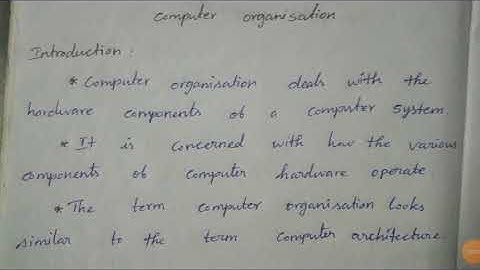 Computer organisation
Introduction :
* Computer organisation deals with the
hardware components of a computer system.
* It is concerned with how the various
components of computer hardware operate
* The term computer organisation looks
similar to the term computer architecture.